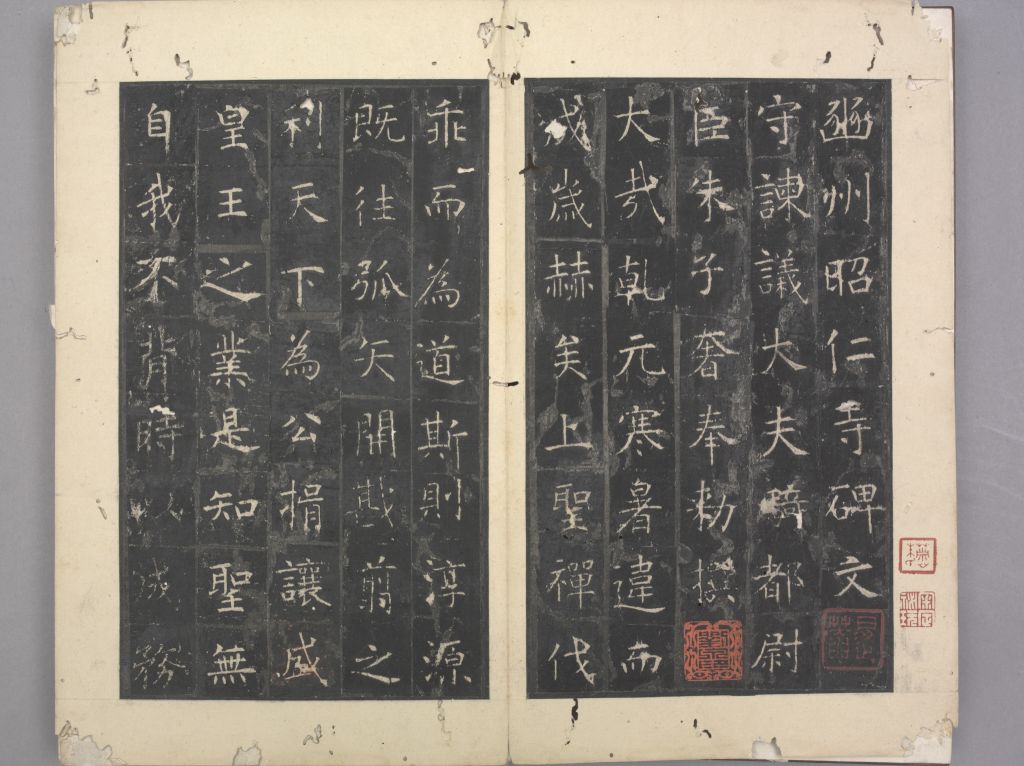 豳州昭仁寺碑文
守諫議大夫騎都尉
臣朱子奢奉勑撰
大哉乾元寒暑違而
成歲赫矣上聖禪代
乖而為道斯則淳源
既往弧矢開戡翦之
利天下為公揖讓
皇王之業是知聖無
自我不背時以成務